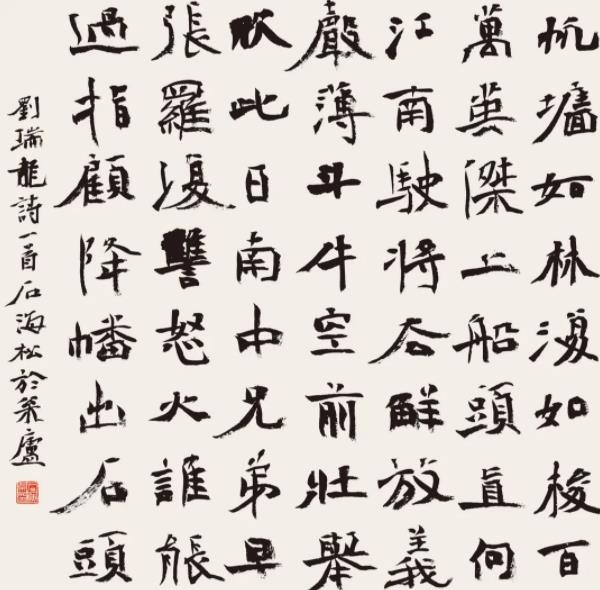 帆墻如林漫如梭百
萬英傑上船頭直向
江南駛將令解放義
聲薄斗牛空前壯舉
歡此日南中兄弟早
張羅復讐怒火誰能
過指顧降幡出石頭
劉瑞龍詩一首石海松於廬